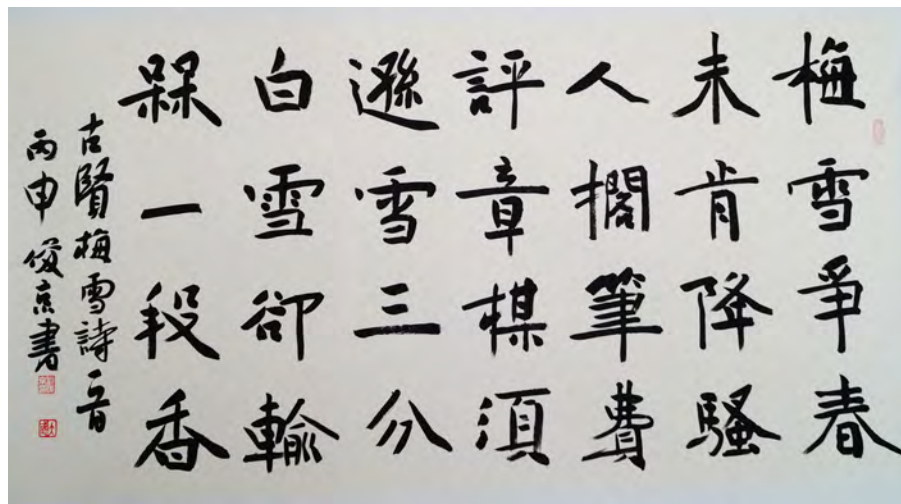 梅雪爭春
未肯降騷
人擱筆費
評章楳須
遜雪三分
白雪卻輸
槑一段香
古賢梅雪詩一首
丙申 俊京書